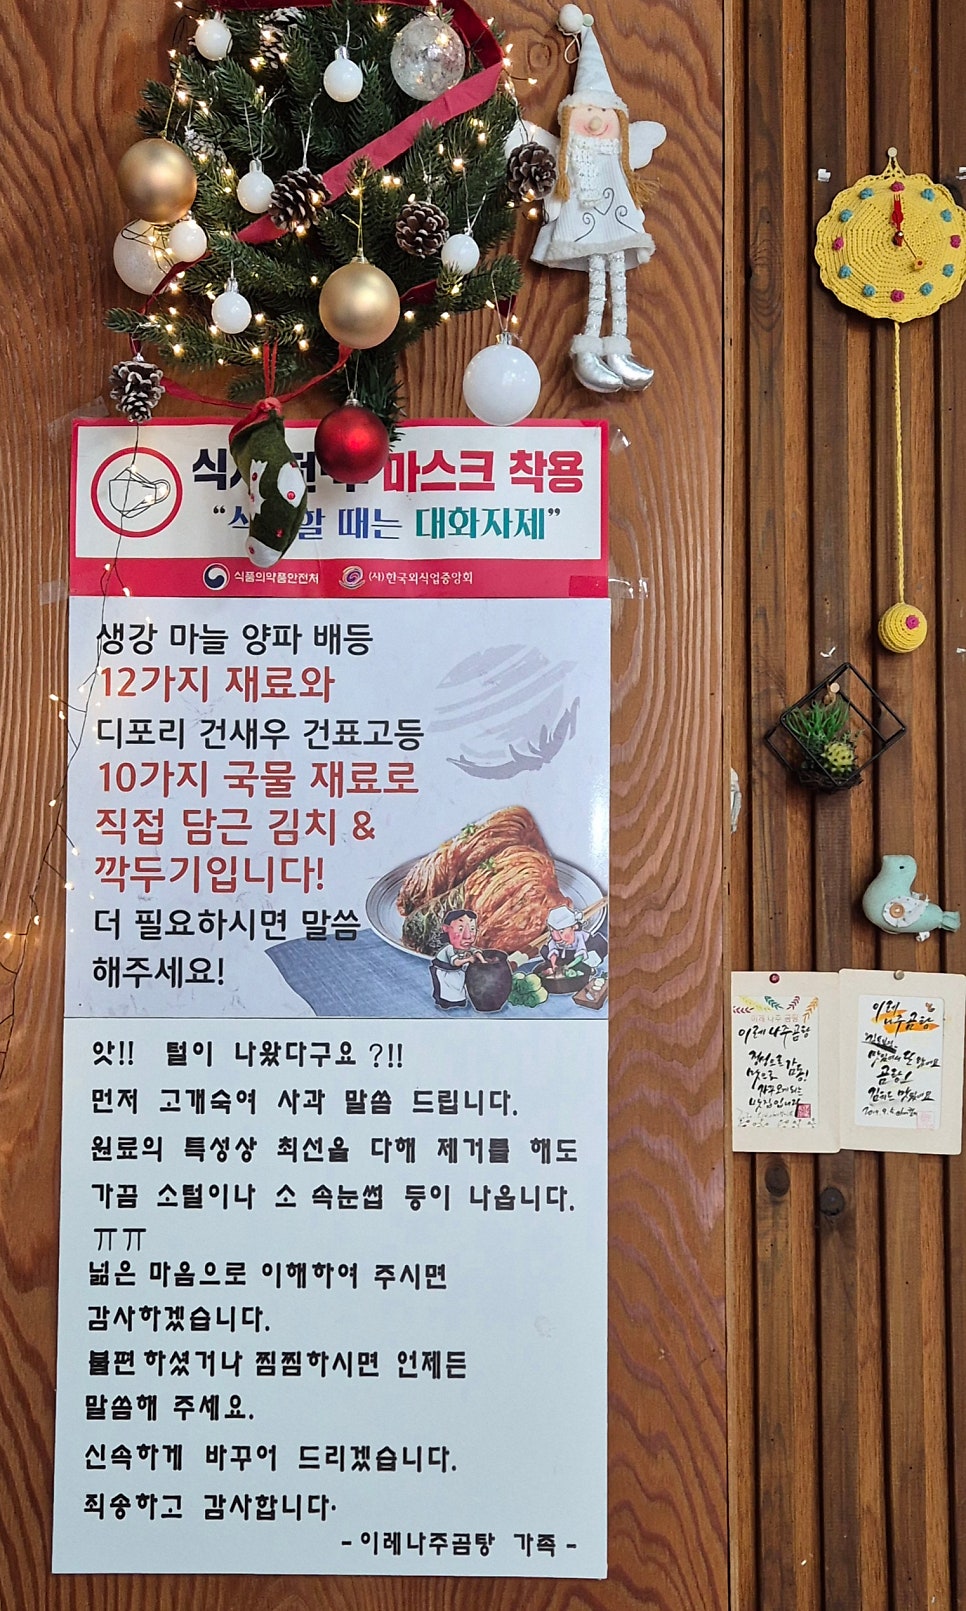 마스크 착용
할 때는 대화자제”
식품의약품안전처 (사)한국외식업중앙회
생강 마늘 양파 배등
12가지 재료와
디포리 건새우 건표고등
10가지 국물 재료로
직접 담근 김치 &
깍두기입니다!
더 필요하시면 말씀
해주세요!
앗!! 털이 나왔다구요?!!
먼저 고개숙여 사과 말씀 드립니다.
원료의 특성상 최선을 다해 제거를 해도
가끔 소털이나 소 속눈썹 등이 나옵니다.
ㅠㅠ
넓은 마음으로 이해하여 주시면
감사하겠습니다.
불편하셨거나 찜찜하시면 언제든
말씀해 주세요.
신속하게 바꾸어 드리겠습니다.
죄송하고 감사합니다.
- 이레나주곰탕 가족 -
이레 나주 곰탕
이레 나주곰탕
정성으로 감
맛으로 감동!
맛집입니다
이레
나주곰탕
곰탕